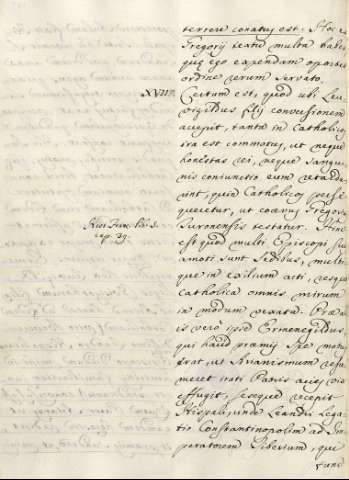 terrere conatus est. Hoc
Gregorij textu multa habes
quę ego expendam oportet
ordine rerum servato.
XVIII. Certum est, quod ubi Leu
virgildus filij conversionem
accepit, tanta in Catholicos
ira est commotus, ut neque
honestas rei, neque sangui
nis coniunctio eum retarda
rint, quin Catholicos perse
queretur, ut coævus Gregorius
Hist. Franc. lib. 5.
cap. 39.
Turonensis testatur. Hinc
est quod multi Episcopi su
amoti sunt Sedibus, mult
que in exilium acti, resque
Catholica omnis mirum
in modum vexata. Præ
is verò ipse Ermenegildus
qui haud præmij spe
ut Arianismum
meret irati Patris
effugit, seseque recepit
Hispali, unde Leandri Lega
tio Constantinopolim ad Im
peratorem Tiberium, qui
tunc